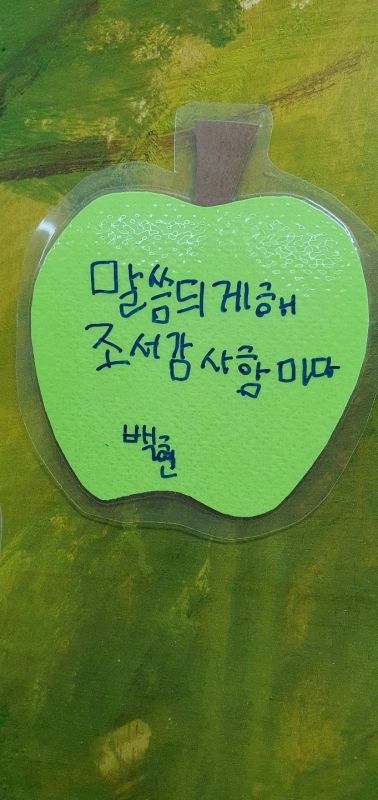 말씀듸게해
조서감사함미다
백현